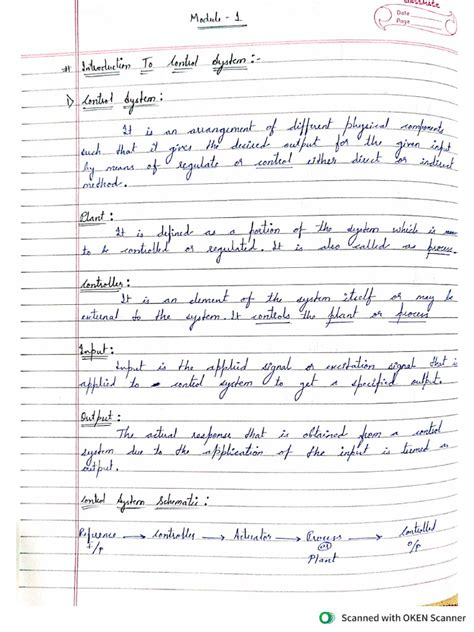 Date
Page
Module - 1
# Introduction To Control System :-
1) Control System :
It is an arrangement of different physical components
such that it gives the desired output for the given input
by means of regulate or control either direct or indirect
method.
Plant :
It is defined as a portion of the system which is
to be controlled or regulated. It is also called as process.
Controller :
It is an element of the system itself or may be
external to the system. It controls the plant or process
Input :
Input is the applied signal or excitation signal that is
applied to control system to get a specified output.
Output :
The actual response that is obtained from a control
system due to the application of the input is termed as
output.
Control System Schematic :
Reference → Controller → Actuator → Process → Controlled
i/p (or) o/p
Plant
Scanned with OKEN Scanner